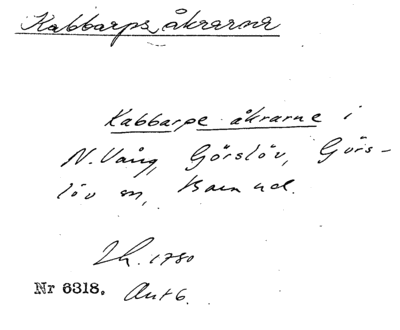 Kabbarps åkrarna
Kabbarpe åkrarne i
N. Vång, Görslöv, Görs-
löv sn, Bara hd.
Lh. 1780
Nr 6318. Akt 6.